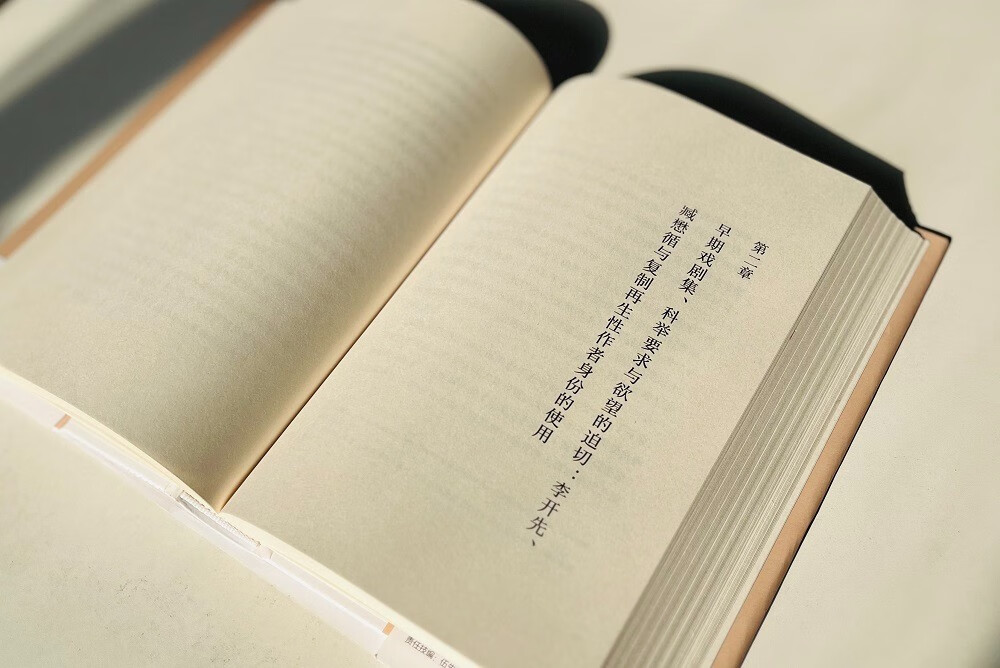 第二章
早期戏剧集、科举要求与欲望的迫切：李开先、
臧懋循与复制再生性作者身份的使用
责任技编：伍